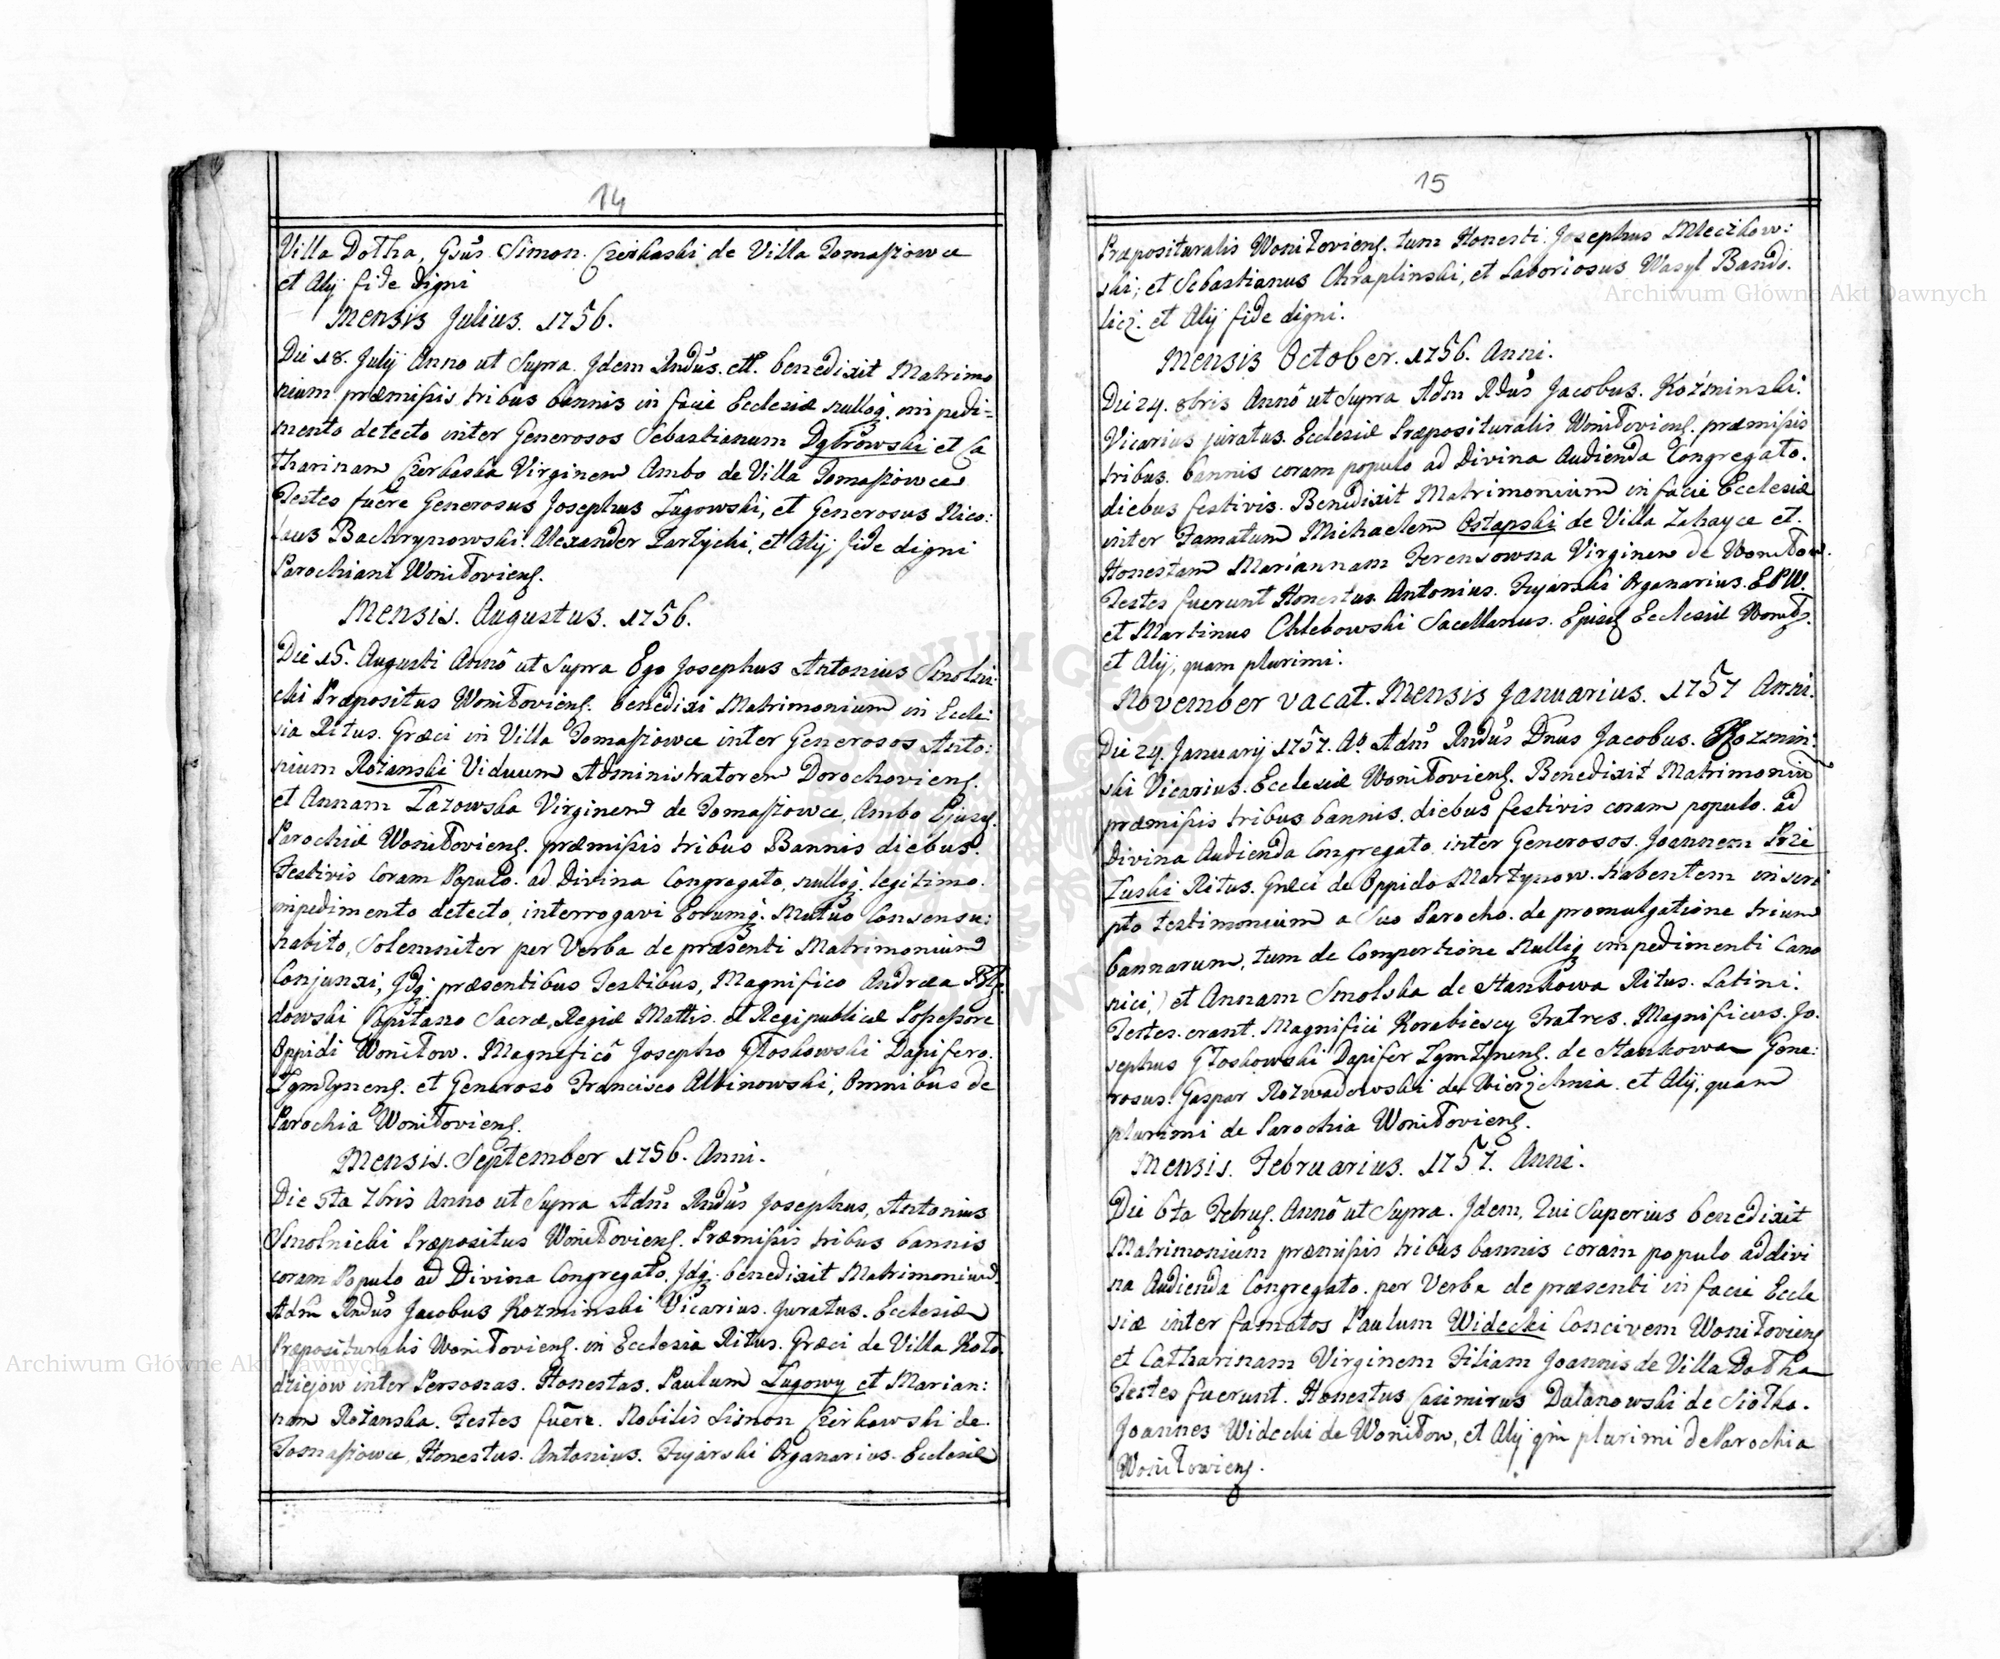 14
Villa Dołha, Gsus Simon. Czerkaski de Villa Tomaszowce
et Alij fide digni
Mensis Julius. 1756.
Die 18. Julij Anno ut Supra. Idem Rndus. ett. benedixit Matrimo
nium præmissis tribus bannis in facie Ecclesiæ nulloq. impedi=
mento detecto inter Generosos Sebastianum Dąbrowski et Ca
tharinam Czerkaska Virginem Ambo de Villa Tomaszowce
Testes fuere Generosus Josephus Ługowski, et Generosus Nico:
laus Bachrynowski. Alexander Zarżycki, et Alij fide digni
Parochiani Woniłoviens.
Mensis. Augustus. 1756.
Die 15. Augusti Anno ut Supra Ego Josephus Antonius Smolni:
cki Præpositus Woniłoviens. benedixi Matrimonium in Eccle:
sia Ritus. Græci in Villa Tomaszowce inter Generosos Anto:
nium Rożanski Viduum Administratorem Dorochoviens.
et Annam Łazowska Virginem de Tomaszowce, Ambo Ejusq.
Parochiæ Woniłoviens. præmissis tribus Bannis diebus.
Festivis Coram Populo. ad Divina Congregato, nulloq. legitimo.
impedimento detecto, interrogavi Eorumq. Mutuo Consensu:
habito, Solemniter per Verba de præsenti Matrimonium
Conjunxi, Idq. præsentibus Testibus, Magnifico Andrea
dowski Capitano Sacræ, Regiæ Mattis. et Regipublicæ Possessore
Oppidi Woniłow. Magnifico Josepho Głoskowski Dapifero.
et Generoso Francisco Albinowski, Omnibus de
Parochia Woniłoviens.
Mensis. September 1756. Anni.
Die 5ta 7bris Anno ut Supra Adm Rndus Josephus, Antonius
Smolnicki Præpositus Woniłoviens. Præmissis tribus bannis
coram Populo ad Divina Congregato, Idq. benedixit Matrimonium.
Adm Rndus Jacobus Kozminski Vicarius. Juratus. Ecclesiæ
Præposituralis Woniłoviens. in Ecclesia Ritus. Græci de Villa Koło
dziejow inter Personas. Honestas. Paulum Ługowy et Marian:
nam Rożanska. Testes fuere. Nobilis Simon Czerkowski de.
Tomaszowce, Honestus. Antonius. Fujarski Organarius. Ecclesiæ
15
Præposituralis Woniłoviens. tum Honesti. Josephus Mleczkow:
ski, et Sebastianus Chraplinski, et Laboriosus Wasyl Bando.
licz. et Alij fide digni.
Mensis October. 1756. Anni.
Die 24. 8bris Anno ut Supra Adm Rdus Jacobus. Koźminski.
Vicarius juratus. Ecclesiæ Præposituralis Woniłoviens. præmissis
tribus. bannis coram populo ad Divina Audienda Congregato.
diebus festivis. Benedixit Matrimonium in facie Ecclesiæ
inter Famatum Michaelem Ostapski de Villa Zahayce et.
Honestam Mariannam Ferensowna Virginem de Woniłow.
Testes fuerunt Honestus. Antonius. Fujarski Organarius. EPW.
et Martinus Chlebowski Sacellanus. Ejusq Ecclesiæ Woniłs.
et Alij, quam plurimi.
November vacat. Mensis Januarius. 1757 Anni.
Die 24. Januarij 1757. Ao Adm Rndus Dnus Jacobus. Kozmin:
ski Vicarius. Ecclesiæ Woniłoviens. Benedixit Matrimoniu
præmissis tribus bannis. diebus festivis coram populo. ad
Divina Audienda Congregato. inter Generosos. Joannem Przi
łuski Ritus. Græci de Oppido Martynow. habentem in scri
pto testimonium a Suo Parocho. de promulgatione trium
bannarum, tum de Compertione Nulliq impedimenti Cano
nici,) et Annam Smolska de Stankowa Ritus. Latini.
Testes. erant. Magnifici Korabiescy Fratres. Magnificus. Jo.
sephus Głoskowski Dapifer de Stankowa Gene:
rosus. Gaspar Rozwadowski de Wierzchnia. et Alij, quam
plurimi de Parochia Woniłoviens.
Mensis. Februarius. 1757. Anni.
Die 6ta Febrs. Anno ut Supra. Idem, Qui Superius benedixit
Matrimonium præmissis tribus bannis coram populo ad divi
na Audienda Congregato. per Verba de præsenti in facie Eccle
siæ inter famatos Paulum Widecki Concivem Woniłoviens
et Catharinam Virginem Filiam Joannis de Villa Dołha
Testes fuerunt. Honestus Casimirus Dulanowski de Siołka.
Joannes Widecki de Woniłow, et Alij qm plurimi de Parochia
Woniłoviens.
Archiwum Główne Akt Dawnych
Archiwum Główne Akt Dawnych